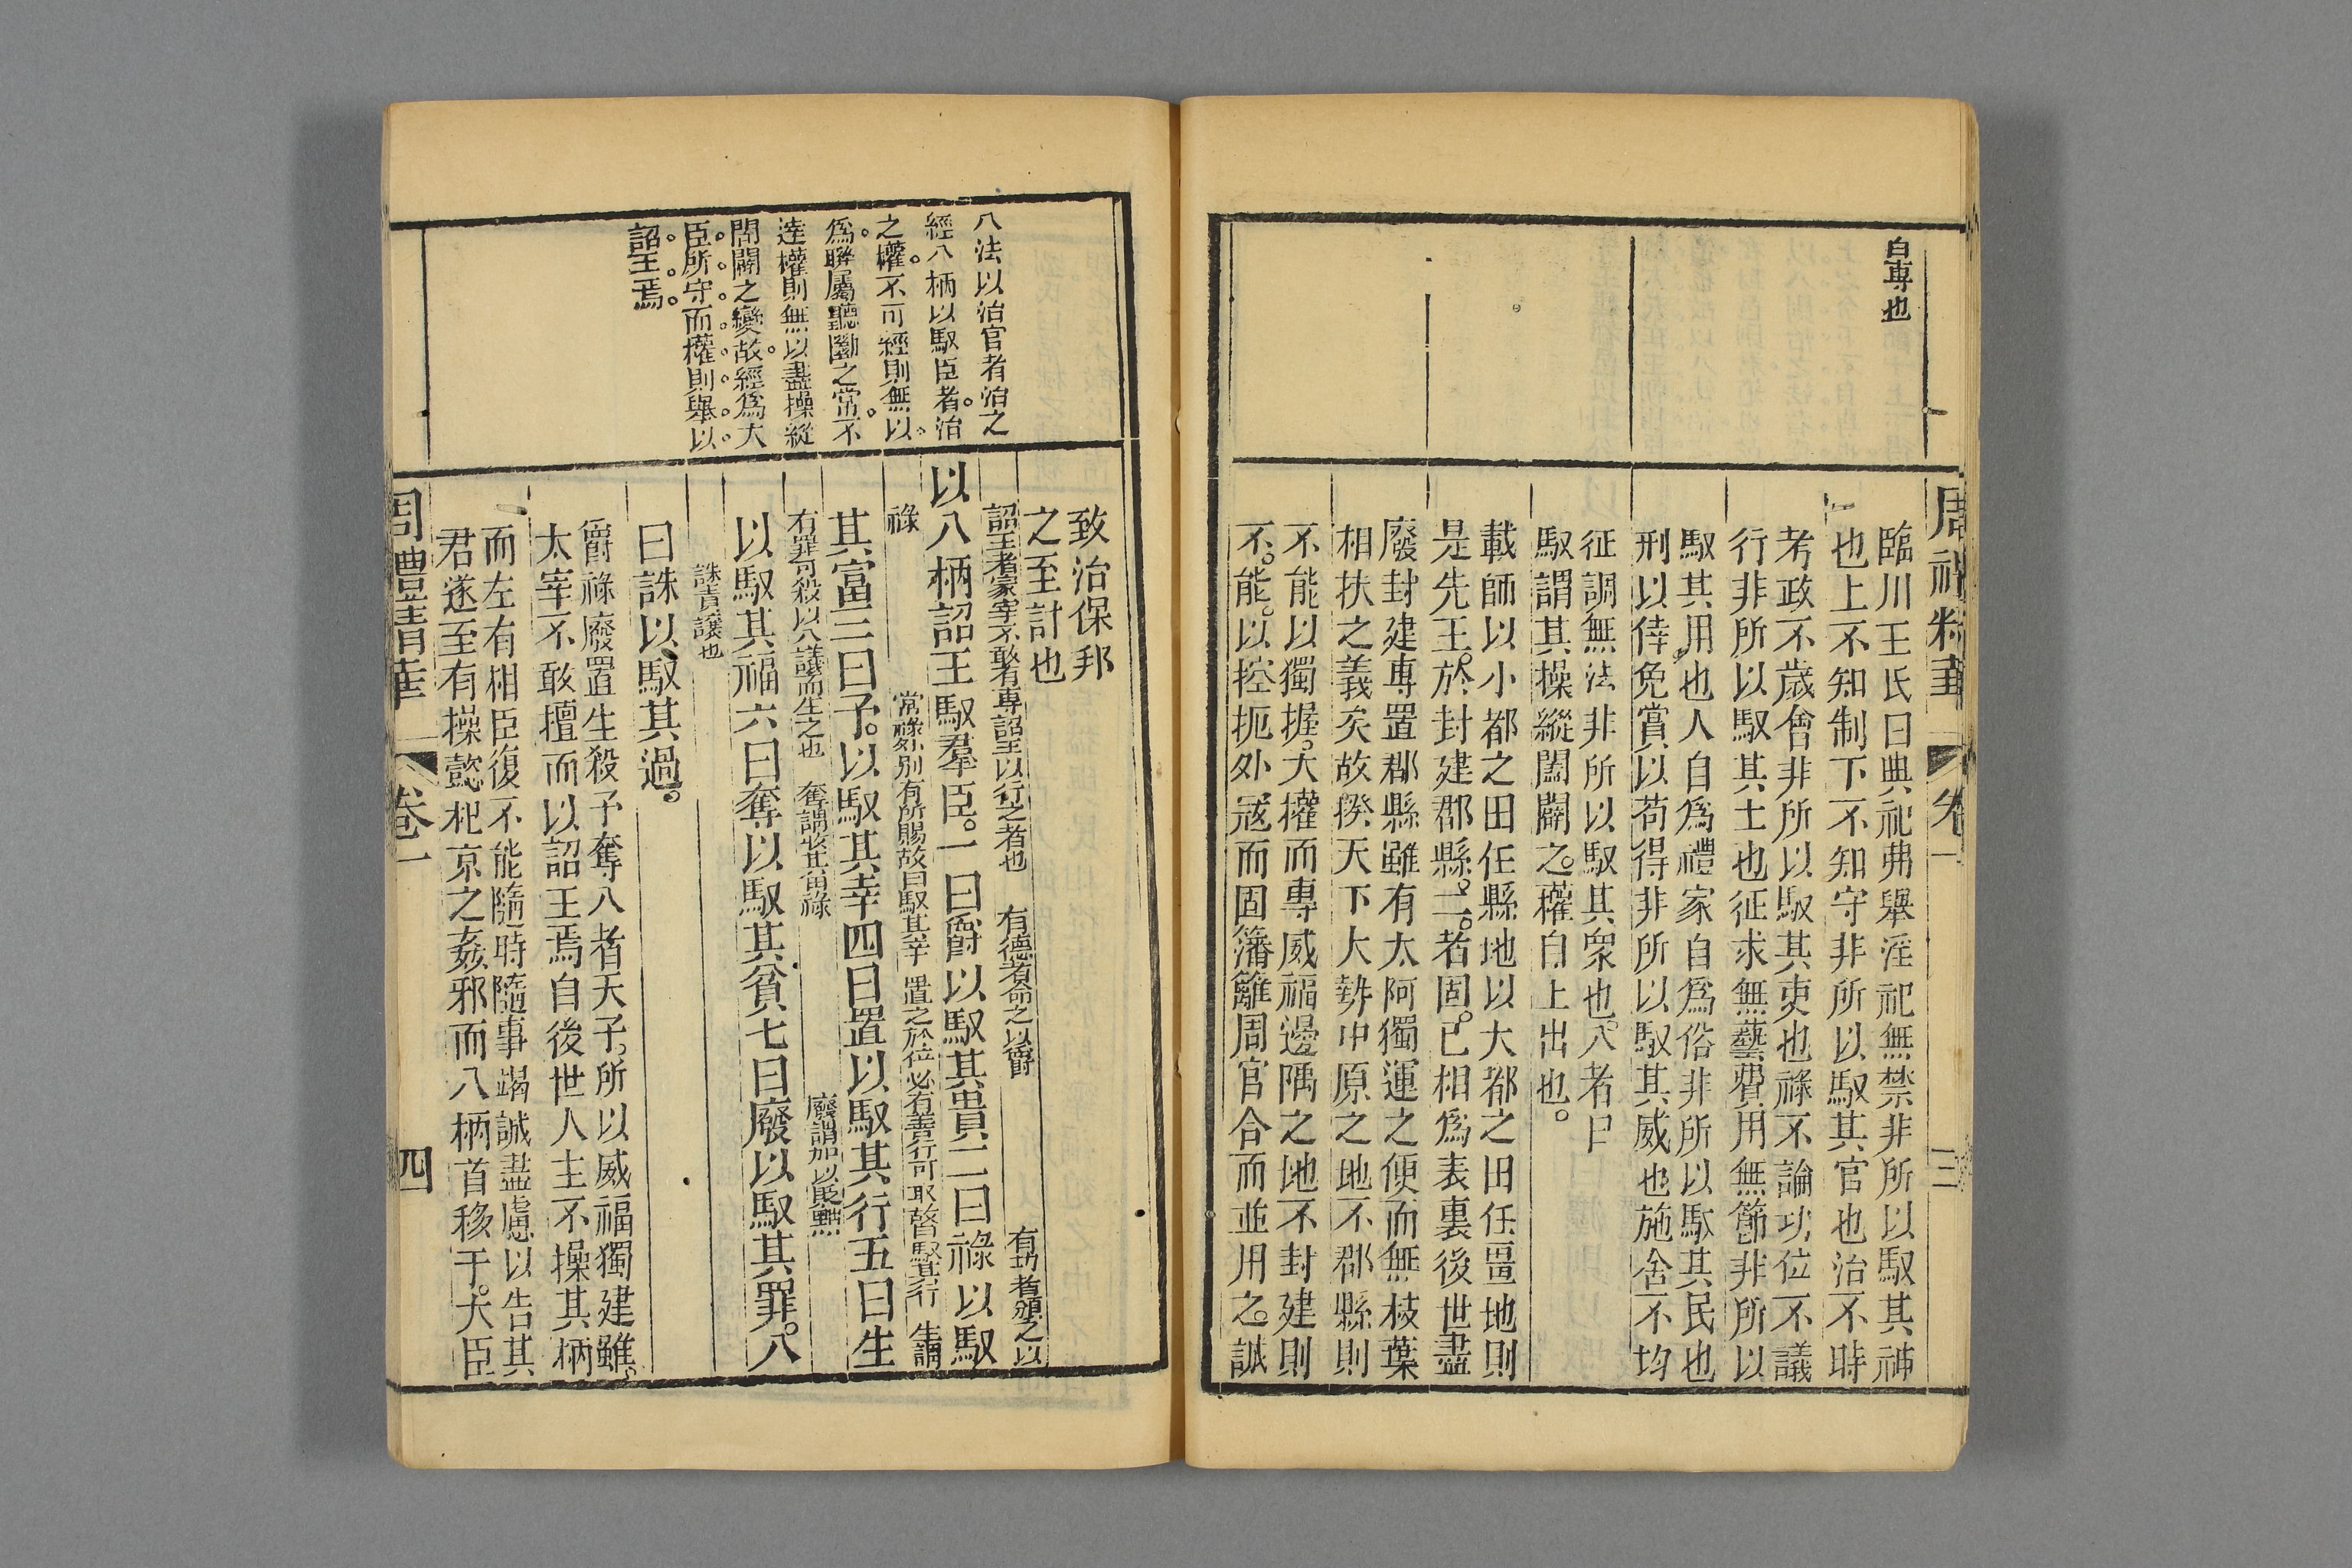 自專也
周禮精華
卷一
三
臨川王氏曰典祀弗舉淫祀無禁非所以馭其神
也上不知制下不知守非所以馭其官也治不時
考政不歲會非所以馭其吏也祿不論功位不議
行非所以馭其士也征求無藝費用無節非所以
馭其用也人自爲禮家自爲俗非所以馭其民也
刑以倖免賞以苟得非所以馭其威也施舍不均
征調無法非所以馭其衆也八者曰
馭謂其操縱闔闢之權自上出也。
載師以小都之田任縣地以大都之田任畺地則
是先王於封建郡縣二者固已相爲表裏後世盡
廢封建專置郡縣雖有太阿獨運之便而無枝葉
相扶之義矣故揆天下大勢中原之地不郡縣則
不能以獨握大權而專威福邊隅之地不封建則
不能以控扼外寇而固籓籬周官合而並用之。誠
八法以治官者治之
經八柄以馭臣者治
之權不可經則無以
爲聯屬聽斷之常不
達權則無以盡操縱
闔闢之變故經爲大
臣所守而權則舉以
詔王焉
致治保邦
之至計也
詔王者冡宰不敢有專詔王以行之者也 有德者命之以爵 有功者頒之以
以八柄詔王馭羣臣。一曰爵以馭其貴二曰祿以馭
祿 常祿外别有所賜故曰馭其幸 置之於位必有善行可取故曰馭其行 生謂
其富三曰予。以馭其幸四曰置以馭其行五曰生
有罪可殺以八議而生之也 奪謂收其田祿 廢謂加以貶黜
以馭其福六曰奪以馭其貧七曰廢以馭其罪。八
誅責讓也
曰誅以馭其過。
爵祿廢置生殺予奪八者天子所以威福獨建雖
太宰不敢擅而以詔王焉自後世人主不操其柄
而左右相臣復不能隨時隨事竭誠盡慮以告其
君遂至有操懿杞京之姦邪而八柄首移于。大臣
周禮精華
卷一
四